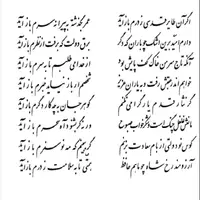 اگر آن طایر قدسی ز درم باز آید عمر بگذشته به پیرانه سرم باز آید
دارم امید برین اشک چو باران که دگر برق دولت که برفت از نظرم باز آید
آنکه تاج سر من خاک کف پایش بود از خدا می طلبم تا بسرم باز آید
خواهم اندر عقبش رفت به یاران عزیز شخصم ار باز نیاید خبرم باز آید
گر نثار قدم یار گرامی نکنم گوهر جان به چه کار دگرم باز آید
مانعش غلغل چنگ است و شکر خواب صبوح ورنه گر بشنود آه سحرم باز آید
کوس نو دولتی از بام سعادت بزنم گر ببینم که مه نو سفرم باز آید
آرزومند رخ شاه چو ماهم حافظ همتی تا به سلامت ز درم باز آید